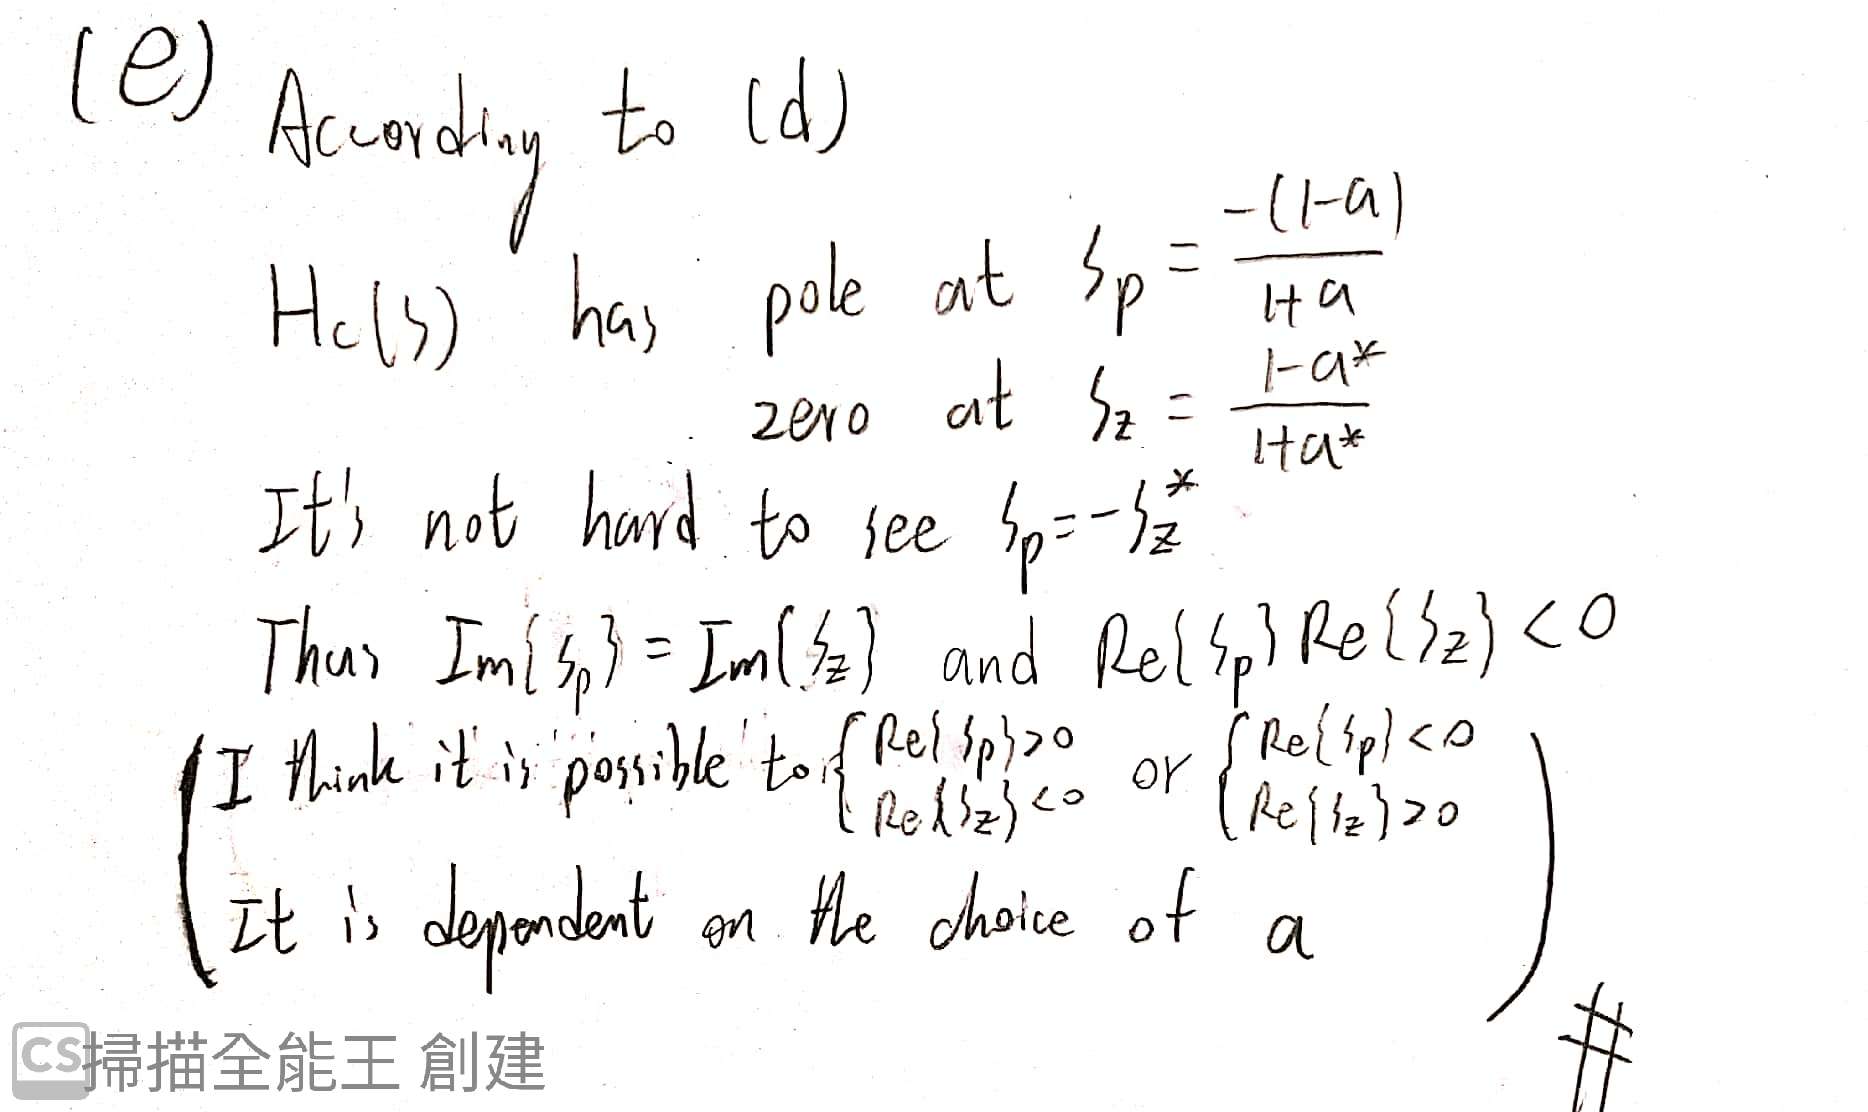 (e) According to (d)
Hc(s) has pole at sp = -(1-a) / 1+a
zero at sz = 1-a* / 1+a*
It's not hard to see sp = -sz*
Thus Im{sp} = Im{sz} and Re{sp} Re{sz} < 0
(I think it is possible to { Re{sp}>0 Re{sz}<0 or { Re{sp}<0 Re{sz}>0
It is dependent on the choice of a )
#
CS掃描全能王 創建